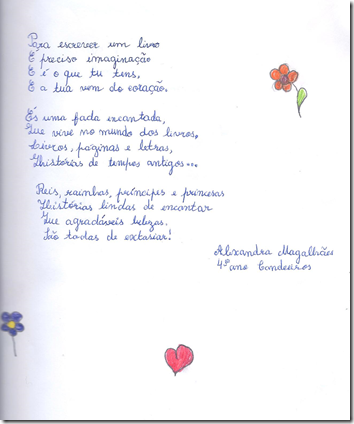 Para escrever um livro
É preciso imaginação
E é o que tu tens,
E a tua vem do coração.
És uma fada encantada,
Que vive no mundo dos livros,
Livros, páginas e letras,
Histórias de tempos antigos...
Reis, rainhas, príncipes e princesas
Histórias lindas de encantar
Que agradáveis belezas.
São todas de extasiar!
Alexandra Magalhães
4º ano